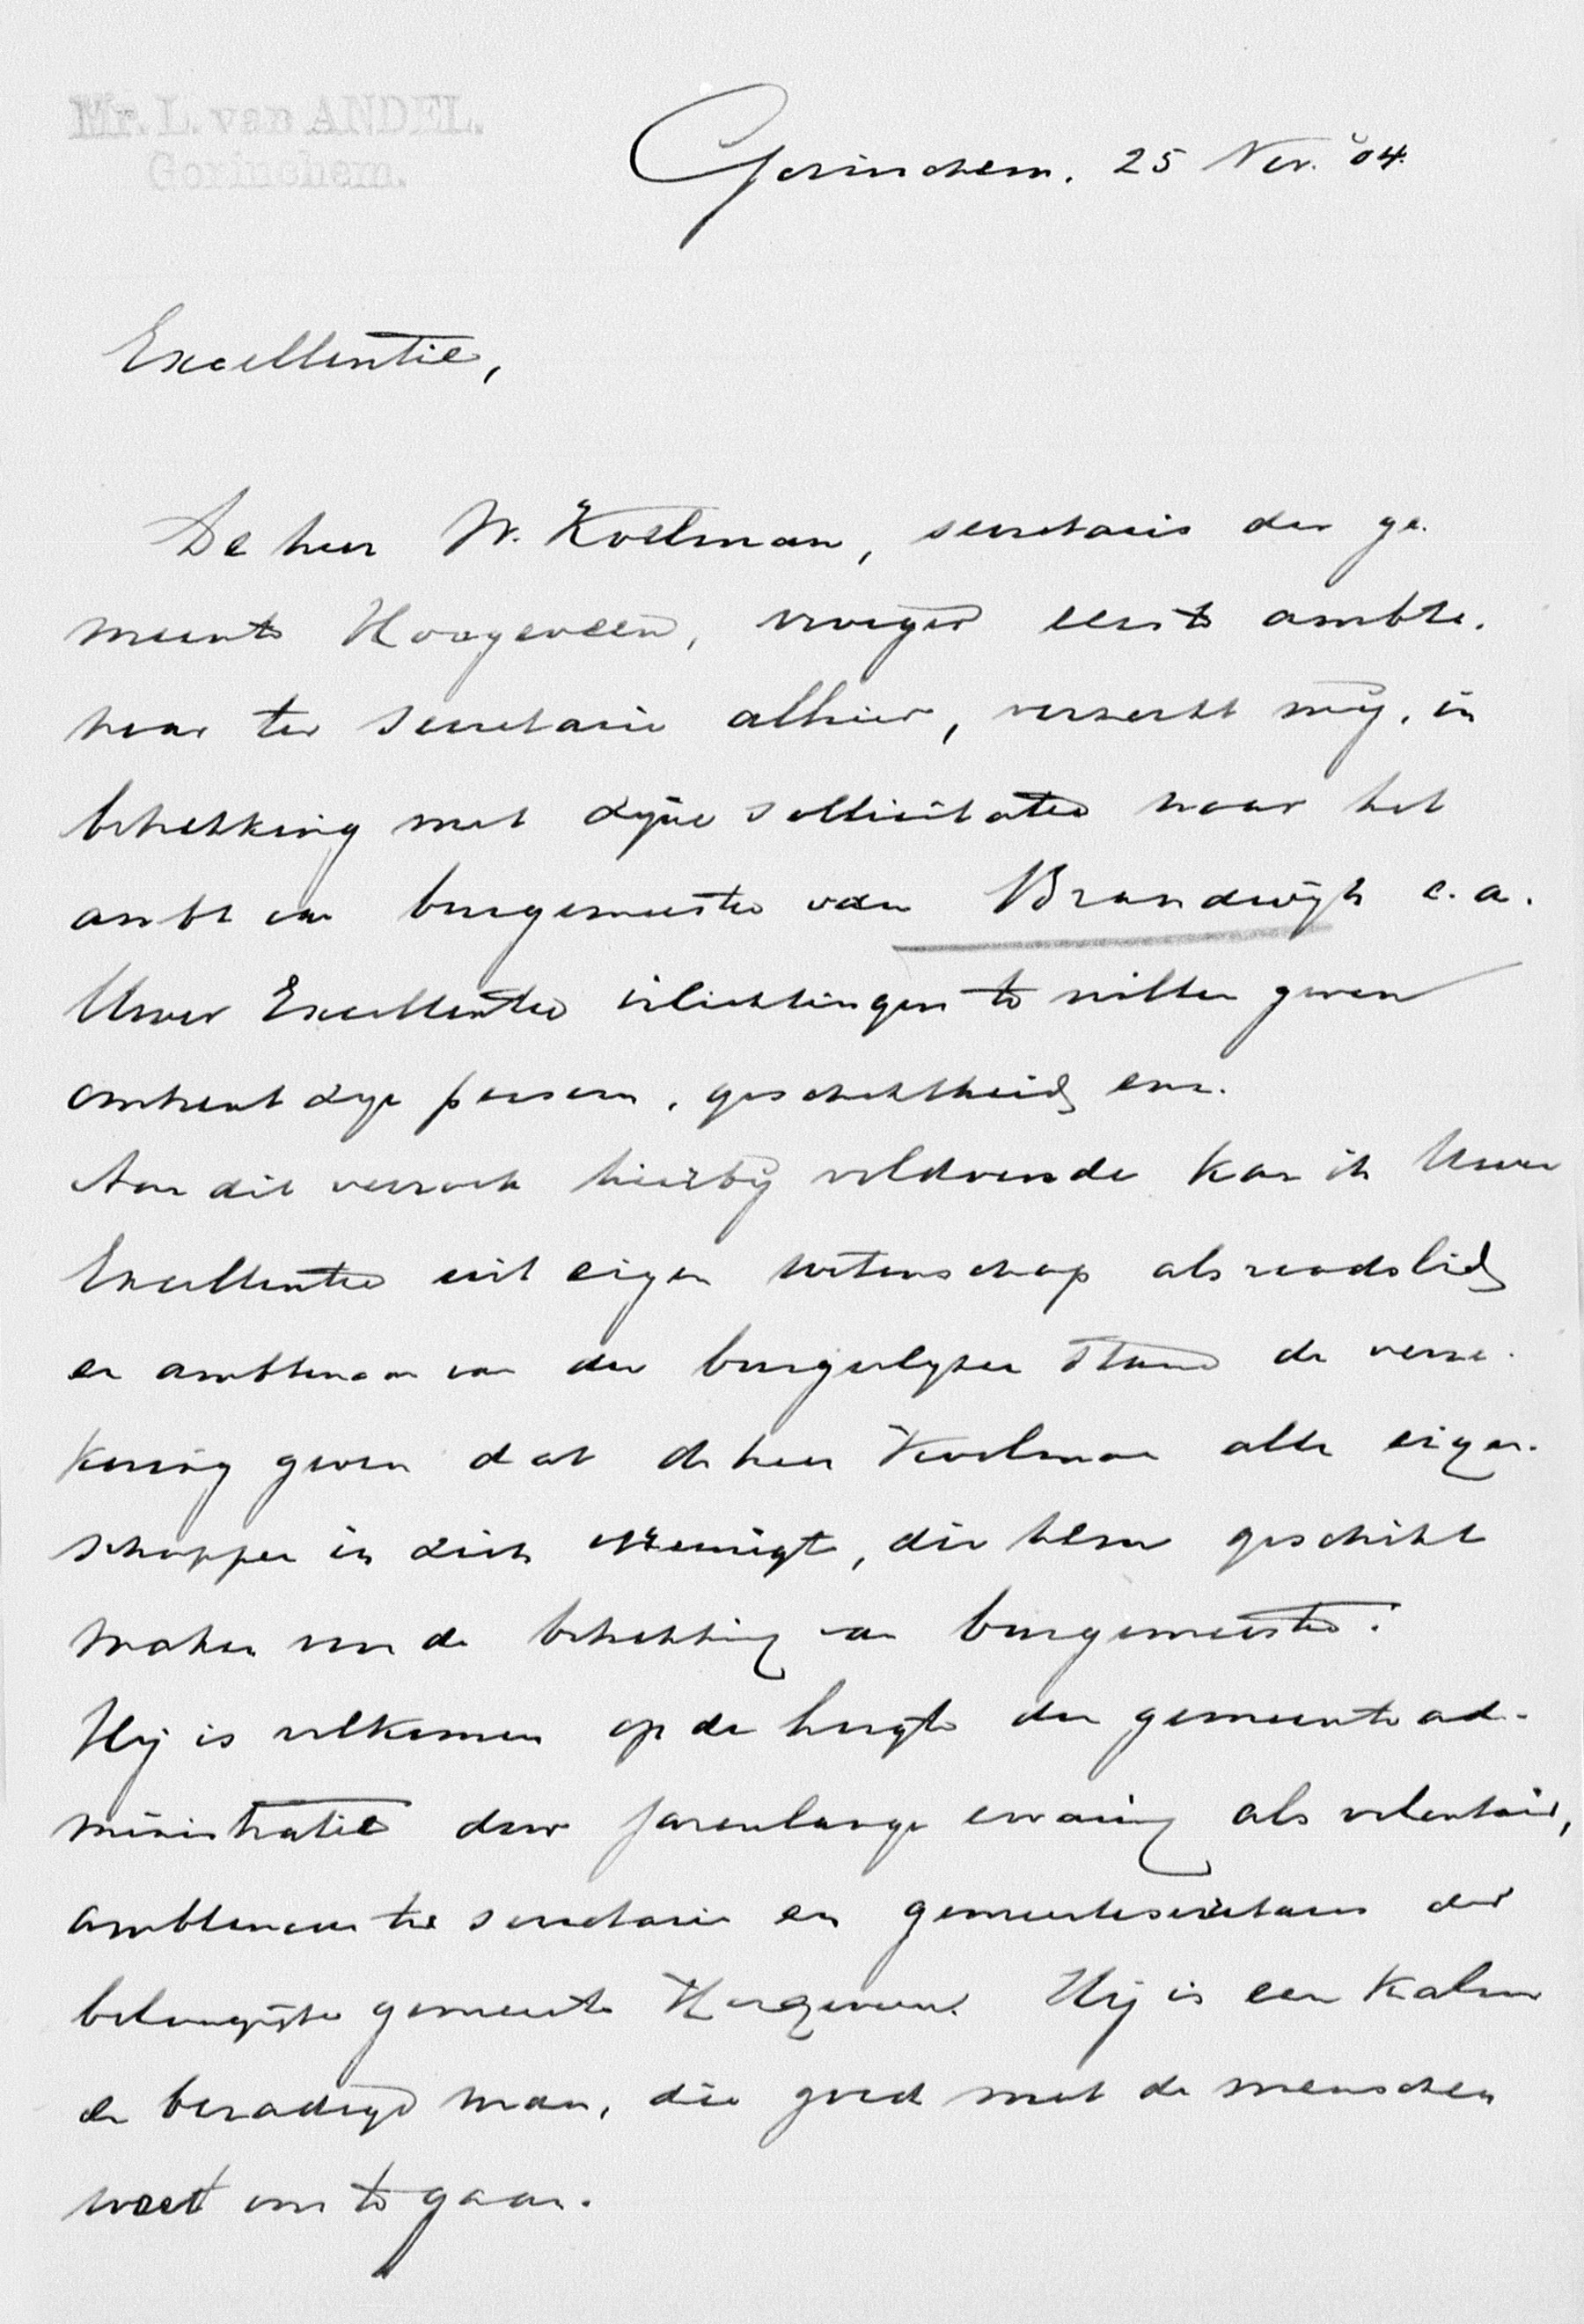 Mr. L. van ANDEL.
Gorinchem.
Gorinchem. 25 Nov. '04.
Excellentie,
De heer W. Koelman, secretaris der ge-
meente Hoogeveen, vroeger eerste ambte-
naar ter secretarie alhier, verzocht mij, in
betrekking met zijne sollicitatie naar het
ambt van burgemeester van Brandwijk c.a.
Uwer Excellentie inlichtingen te willen geven
omtrent zijn persoon, geschiktheid enz.
Aan dit verzoek hierbij voldoende kan ik Uwer
Excellentie uit eigen wetenschap als raadslid
en ambtenaar van den burgerlijken stand de verze-
kering geven dat de heer Koelman alle eigen-
schappen in zich vereenigt, die hem geschikt
maken voor de betrekking van burgemeester.
Hij is volkomen op de hoogte der gemeente ad-
ministratie door jarenlange ervaring als volontair,
ambtenaar ter secretarie en gemeentesecretaris der
belangrijke gemeente Hoogeveen. Hij is een kalm
en bezadigd man, die goed met de menschen
weet om te gaan.